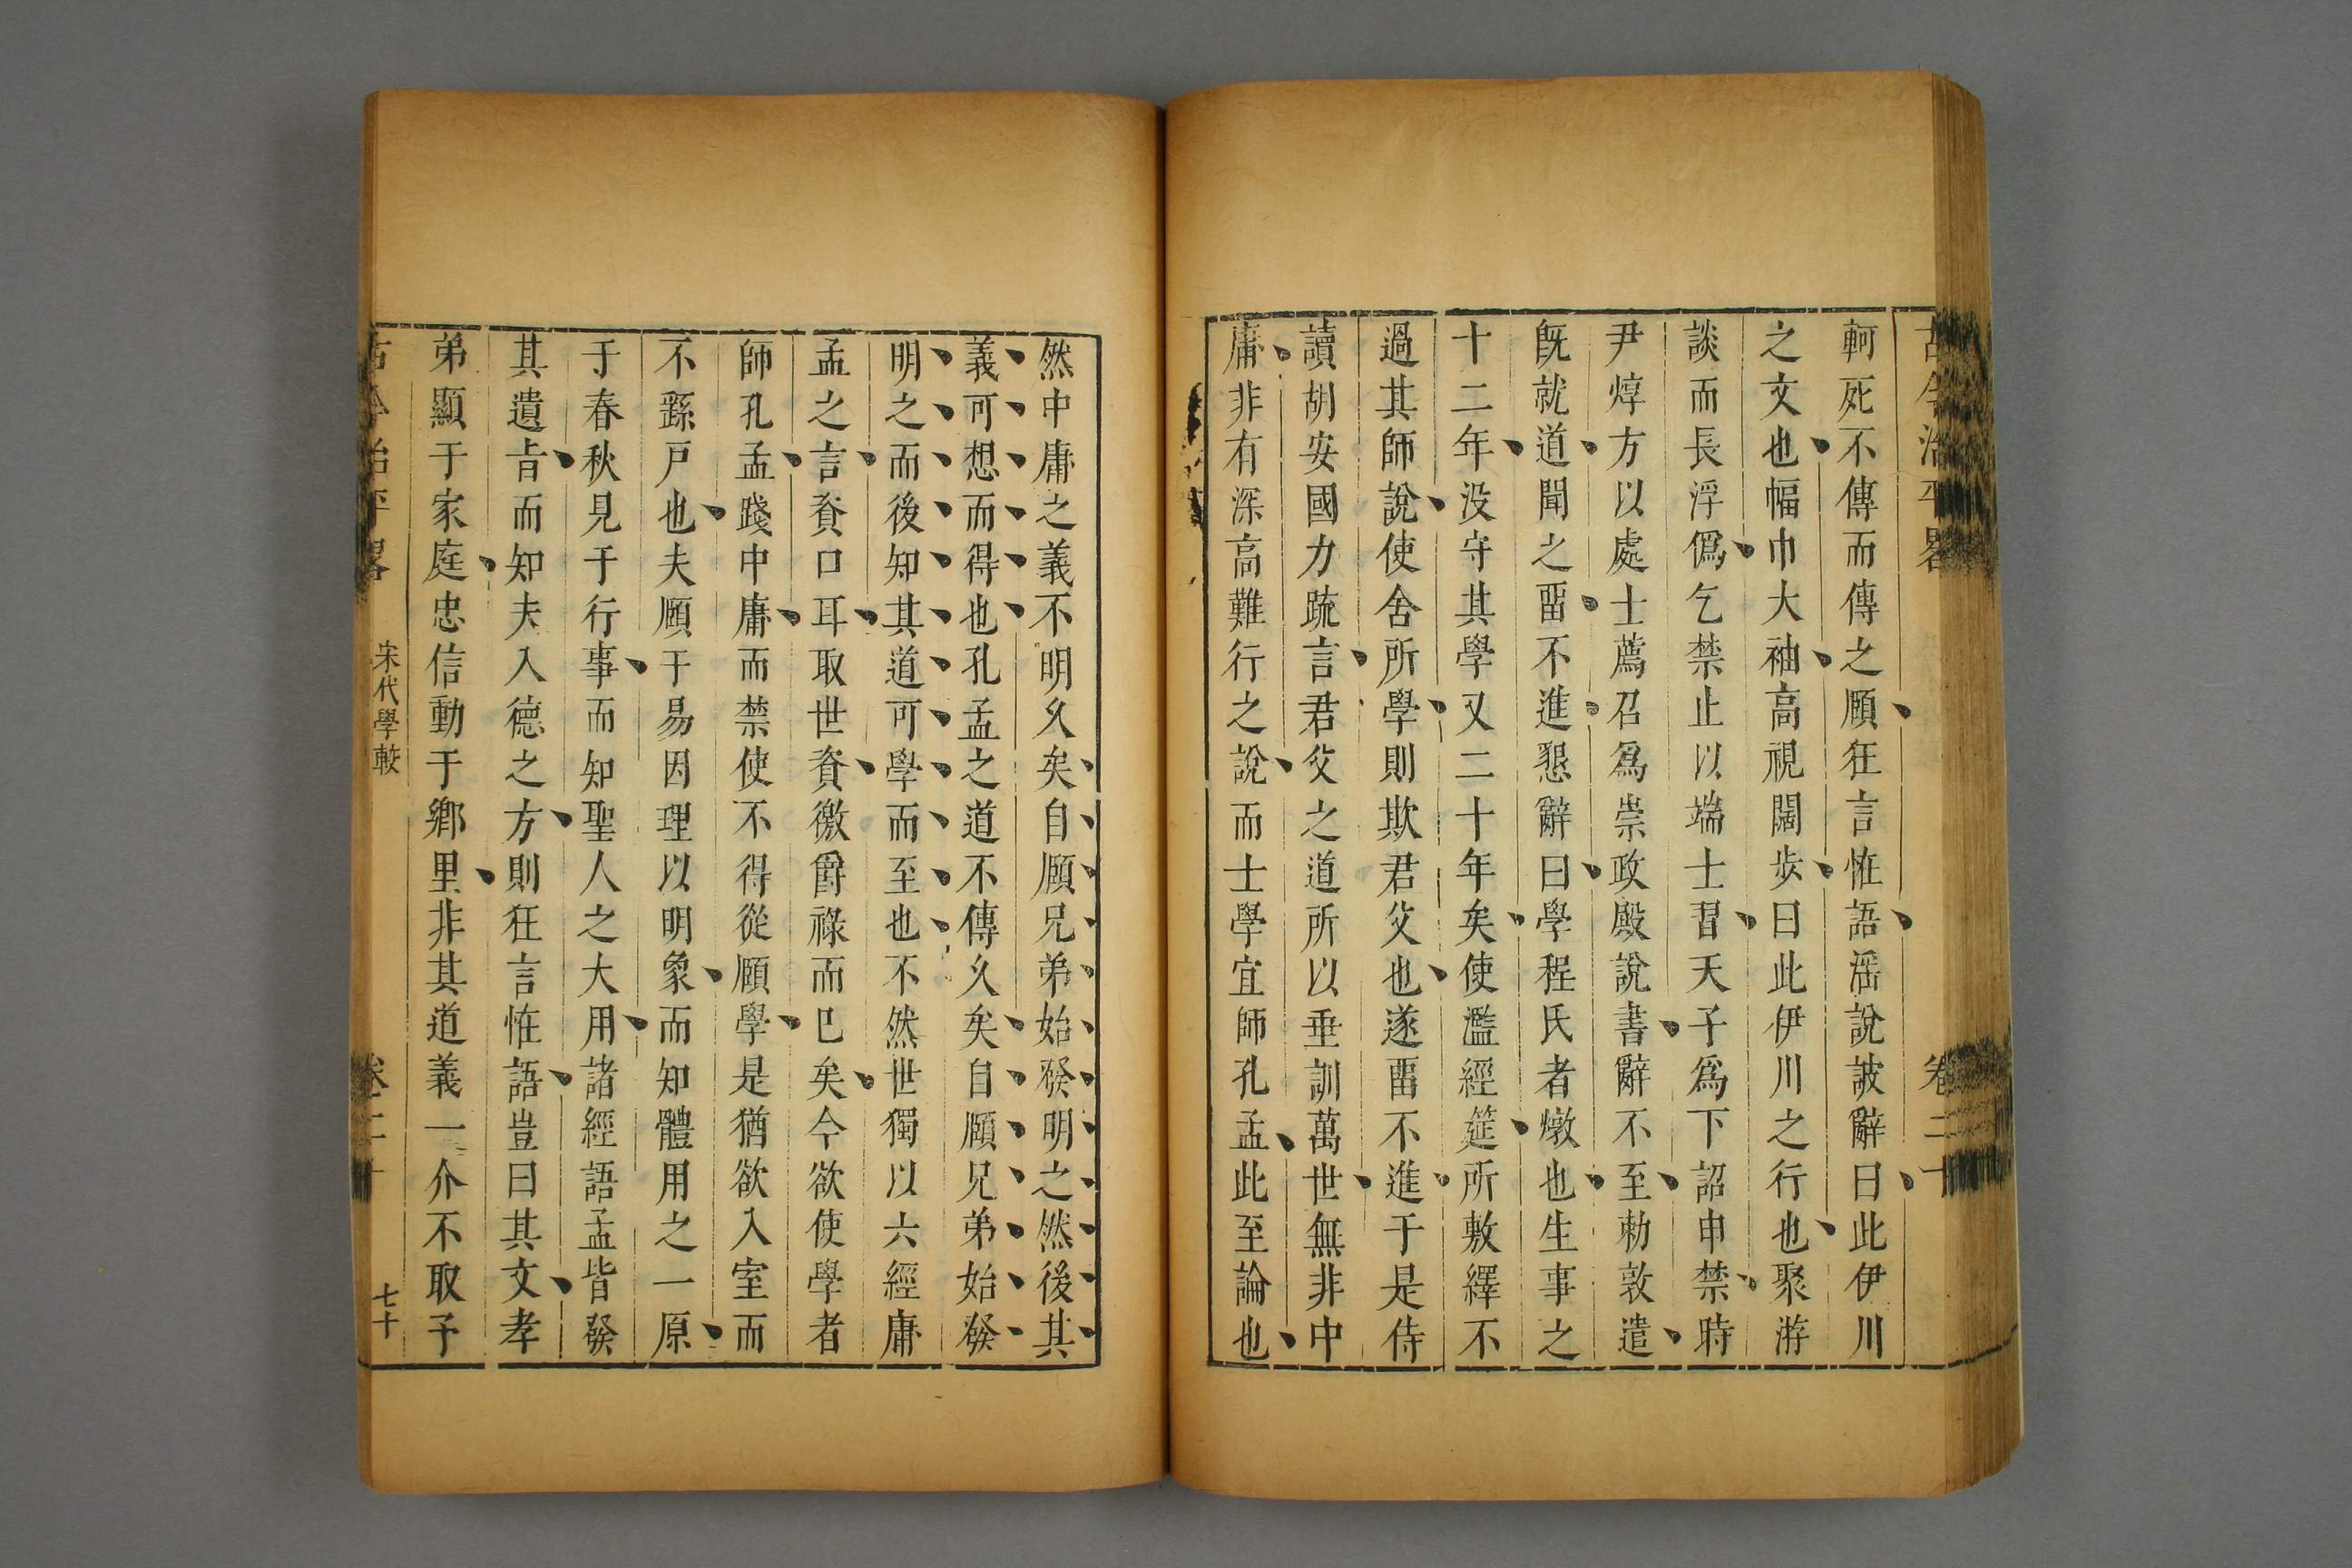 古今治平畧 卷二十
軻死不傳而傳之頤狂言恠語滛說詖辭曰此伊川
之文也幅巾大袖高視闊步曰此伊川之行也聚游
談而長浮僞乞禁止以端士習天子爲下詔申禁時
尹焞方以處士薦召爲崇政殿說書辭不至勅敦遣
旣就道聞之畱不進懇辭曰學程氏者燉也生事之
十二年没守其學又二十年矣使濫經筵所敷繹不
過其師說使舍所學則欺君父也遂畱不進于是侍
讀胡安國力疏言君父之道所以垂訓萬世無非中
庸非有深高難行之說而士學宜師孔孟此至論也
然中庸之義不明久矣自頤兄弟始發明之然後其
義可想而得也孔孟之道不傳久矣自頤兄弟始發
明之而後知其道可學而至也不然世獨以六經庸
孟之言資口耳取世資徼爵祿而已矣今欲使學者
師孔孟踐中庸而禁使不得從頤學是猶欲入室而
不繇戸也夫頤于易因理以明象而知體用之一原
于春秋見于行事而知聖人之大用諸經語孟皆發
其遺㫖而知夫入德之方則狂言恠語豈曰其文孝
弟顯于家庭忠信動于鄉里非其道義一介不取予
古今治平畧 宋代學較 卷二十 七十